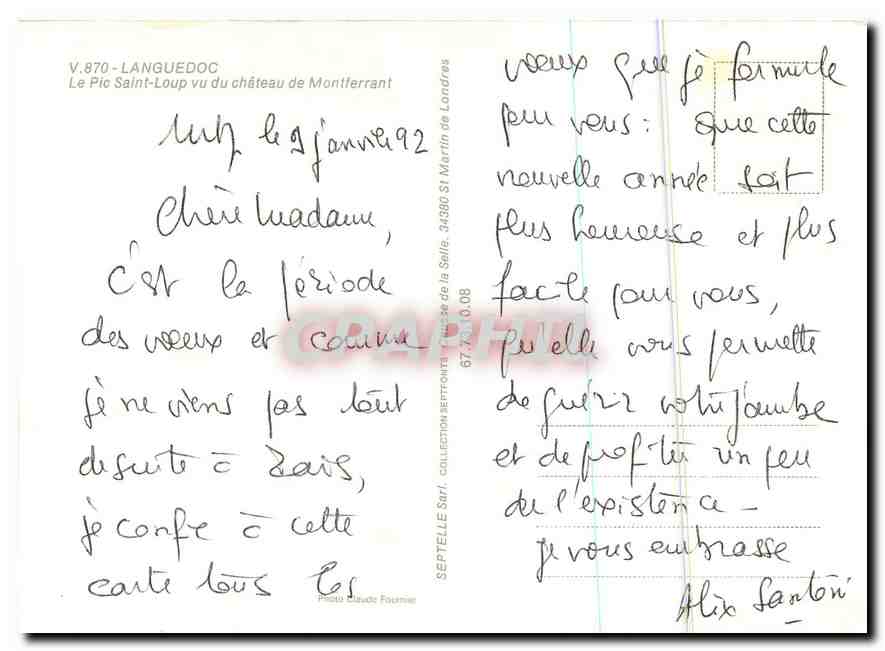 V.870 - LANGUEDOC
Le Pic Saint-Loup vu du château de Montferrant
le 9 janvier 92
Chère Madame,
c'est la période
des voeux et comme
je ne viens pas tout
de suite à
je confie à cette
carte tous les
Photo Claude Fournier
SEPTELLE Sarl. COLLECTION SEPTFONTS de la Selle, 34380 St Martin de Londres
67.73.10.08
voeux que je formule
pour vous : que cette
nouvelle année soit
plus heureuse et plus
facile pour vous,
qu'elle vous permette
de guérir votre jambe
et de profiter un peu
de l'existence -
je vous embrasse
Alix Santoni